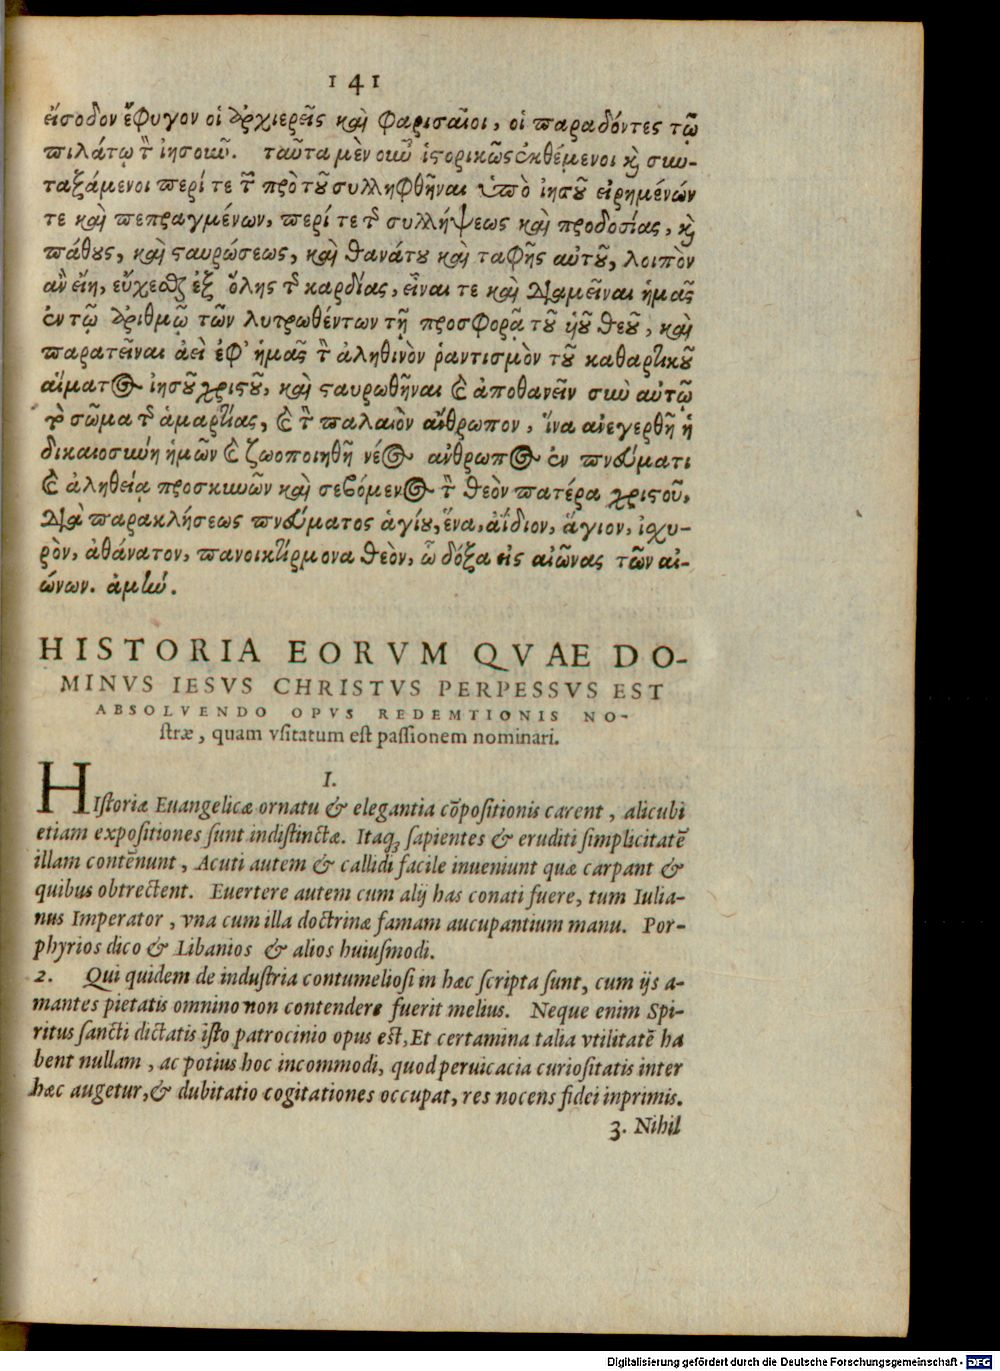 141
εἴσοδον ἔφυγον οἱ ἀρχιερεῖς καὶ φαρισαῖοι, οἱ παραδόντες τῷ
πιλάτῳ τὸν ἰησοῦν. ταῦτα μὲν οὖν ἱστορικῶς ἐκθέμενοι καὶ συν-
ταξάμενοι περί τε τῶν πρὸ τοῦ συλληφθῆναι ὑπὸ ἰησοῦ εἰρημένων
τε καὶ πεπραγμένων, περί τε τῆς συλλήψεως καὶ προδοσίας, καὶ
πάθους, καὶ σταυρώσεως, καὶ θανάτου καὶ ταφῆς αὐτοῦ, λοιπὸν
ἂν εἴη, εὔχεσθαι ἐξ ὅλης τῆς καρδίας, εἶναι τε καὶ διαμεῖναι ἡμᾶς
ἐν τῷ ἀριθμῷ τῶν λυτρωθέντων τῇ προσφορᾷ τοῦ υἱοῦ θεοῦ, καὶ
παρατεῖναι ἀεὶ ἐφ' ἡμᾶς τὸν ἀληθινὸν ῥαντισμὸν τοῦ καθαρτικοῦ
αἵματος ἰησοῦ χριστοῦ, καὶ σταυρωθῆναι καὶ ἀποθανεῖν σὺν αὐτῷ
τὸ σῶμα τῆς ἁμαρτίας, καὶ τὸν παλαιὸν ἄνθρωπον, ἵνα ἀνεγερθῇ ἡ
δικαιοσύνη ἡμῶν καὶ ζωοποιηθῇ νέος ἄνθρωπος ἐν πνεύματι
καὶ ἀληθείᾳ προσκυνῶν καὶ σεβόμενος τὸν θεὸν πατέρα χριστοῦ,
διὰ παρακλήσεως πνεύματος ἁγίου, ἕνα, ἀΐδιον, ἅγιον, ἰσχυ-
ρὸν, ἀθάνατον, πανοικτίρμονα θεὸν, ᾧ δόξα εἰς αἰῶνας τῶν αἰ-
ώνων. ἀμήν.
HISTORIA EORVM QVAE DO-
MINVS IESVS CHRISTVS PERPESSVS EST
ABSOLVENDO OPVS REDEMTIONIS NO-
stræ, quam vsitatum est passionem nominari.
I.
HIstoriæ Euangelicæ ornatu & elegantia cõpositionis carent, alicubi
etiam expositiones sunt indistinctæ. Itaq; sapientes & eruditi simplicitatẽ
illam contẽnunt, Acuti autem & callidi facile inueniunt quæ carpant &
quibus obtrectent. Euertere autem cum alij has conati fuere, tum Iulia-
nus Imperator, vna cum illa doctrinæ famam aucupantium manu. Por-
phyrios dico & Libanios & alios huiusmodi.
2. Qui quidem de industria contumeliosi in hæc scripta sunt, cum ijs a-
mantes pietatis omnino non contendere fuerit melius. Neque enim Spi-
ritus sancti dictatis isto patrocinio opus est, Et certamina talia vtilitatẽ ha
bent nullam, ac potius hoc incommodi, quod peruicacia curiositatis inter
hæc augetur, & dubitatio cogitationes occupat, res nocens fidei inprimis.
3. Nihil
Digitalisierung gefördert durch die Deutsche Forschungsgemeinschaft - DFG